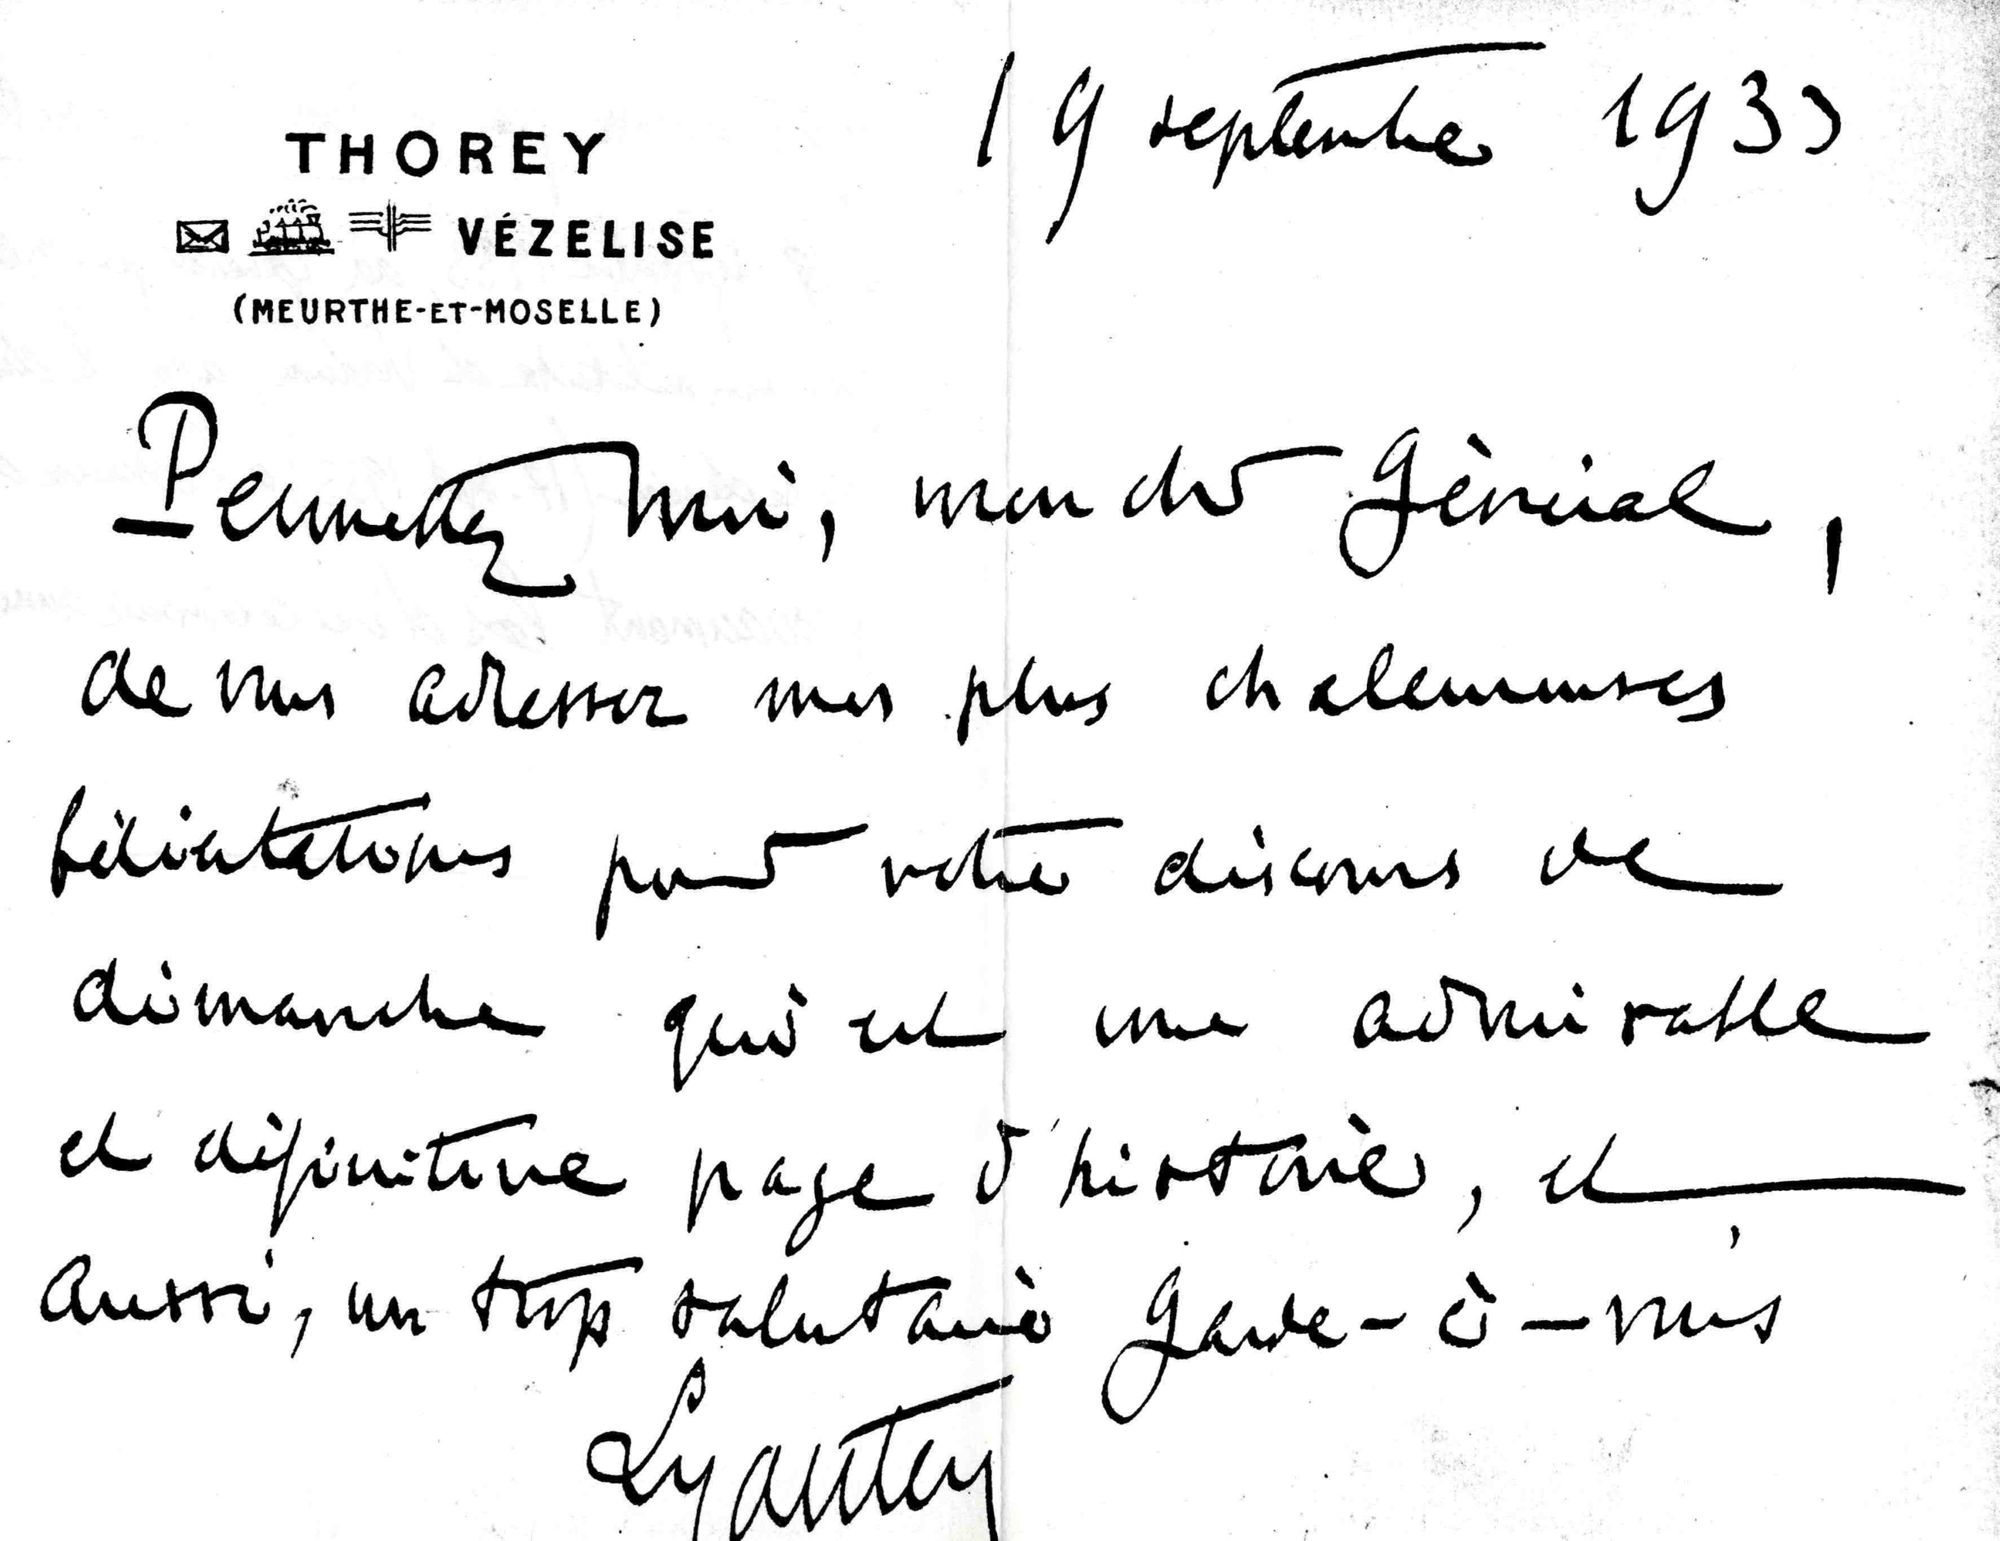 19 septembre 1933
THOREY
VÉZELISE
(MEURTHE-ET-MOSELLE)
Permettez moi, mon cher Général,
de vous adresser mes plus chaleureuses
félicitations pour votre discours de
dimanche qui est une admirable
et définitive page d'histoire, et
aussi, un trop salutaire garde-à-vous
Lyautey